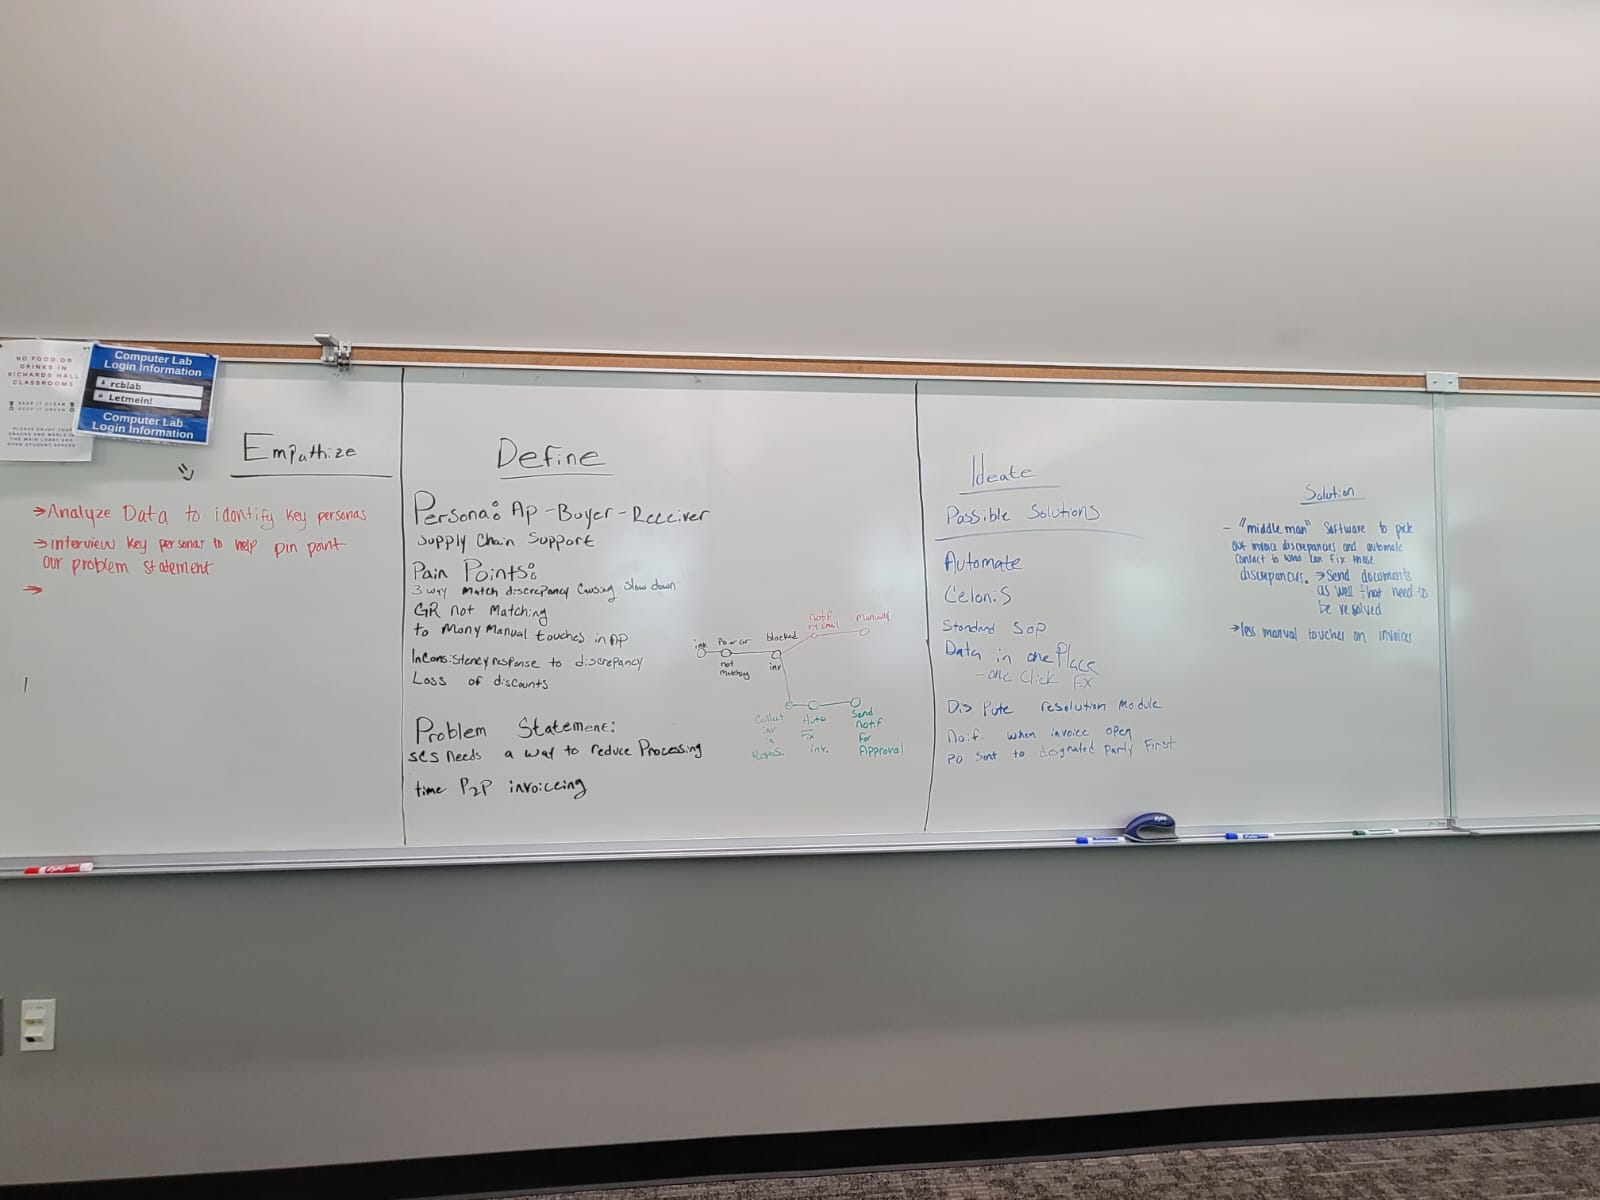 NO FOOD OR
DRINKS IN
RICHARDS HALL
CLASSROOMS
KEEP IT CLEAN
KEEP IT GREEN
PLEASE ENJOY YOUR
SNACKS AND MEALS IN
THE MAIN LOBBY AND
OPEN STUDENT SPACES
Computer Lab
Login Information
rcblab
Letmein!
Computer Lab
Login Information
Empathize
→Analyze Data to identify key personas
→Interview key personas to help pin point
our problem statement
→
Define
Persona: Ap-Buyer-Receiver
Supply Chain Support
Pain Points:
3 way Match discrepancy Causing slow down
GR not Matching
to Many Manual touches in AP
Inconsistency response to discrepancy
Loss of discounts
Problem Statement:
SCS Needs a way to reduce Processing
time P2P invoiceing
ink
Po or GR
not
Matching
blocked
inv
Notif
via Email
Manually
Collect
inv
in
Auto
Fix
inv.
Send
Notif
For
Approval
Ideate
Possible Solutions
Automate
Celonis
Standard SOP
Data in one Place
-one Click Fix
Dispute resolution Module
Noif. when invoice open
PO Sent to designated party First
Solution
- "middle man" Software to pick
out invoice discrepancies and automate
contact to who can fix those
discrepancies. →Send documents
as well that need to
be resolved
→less manual touches on invoices